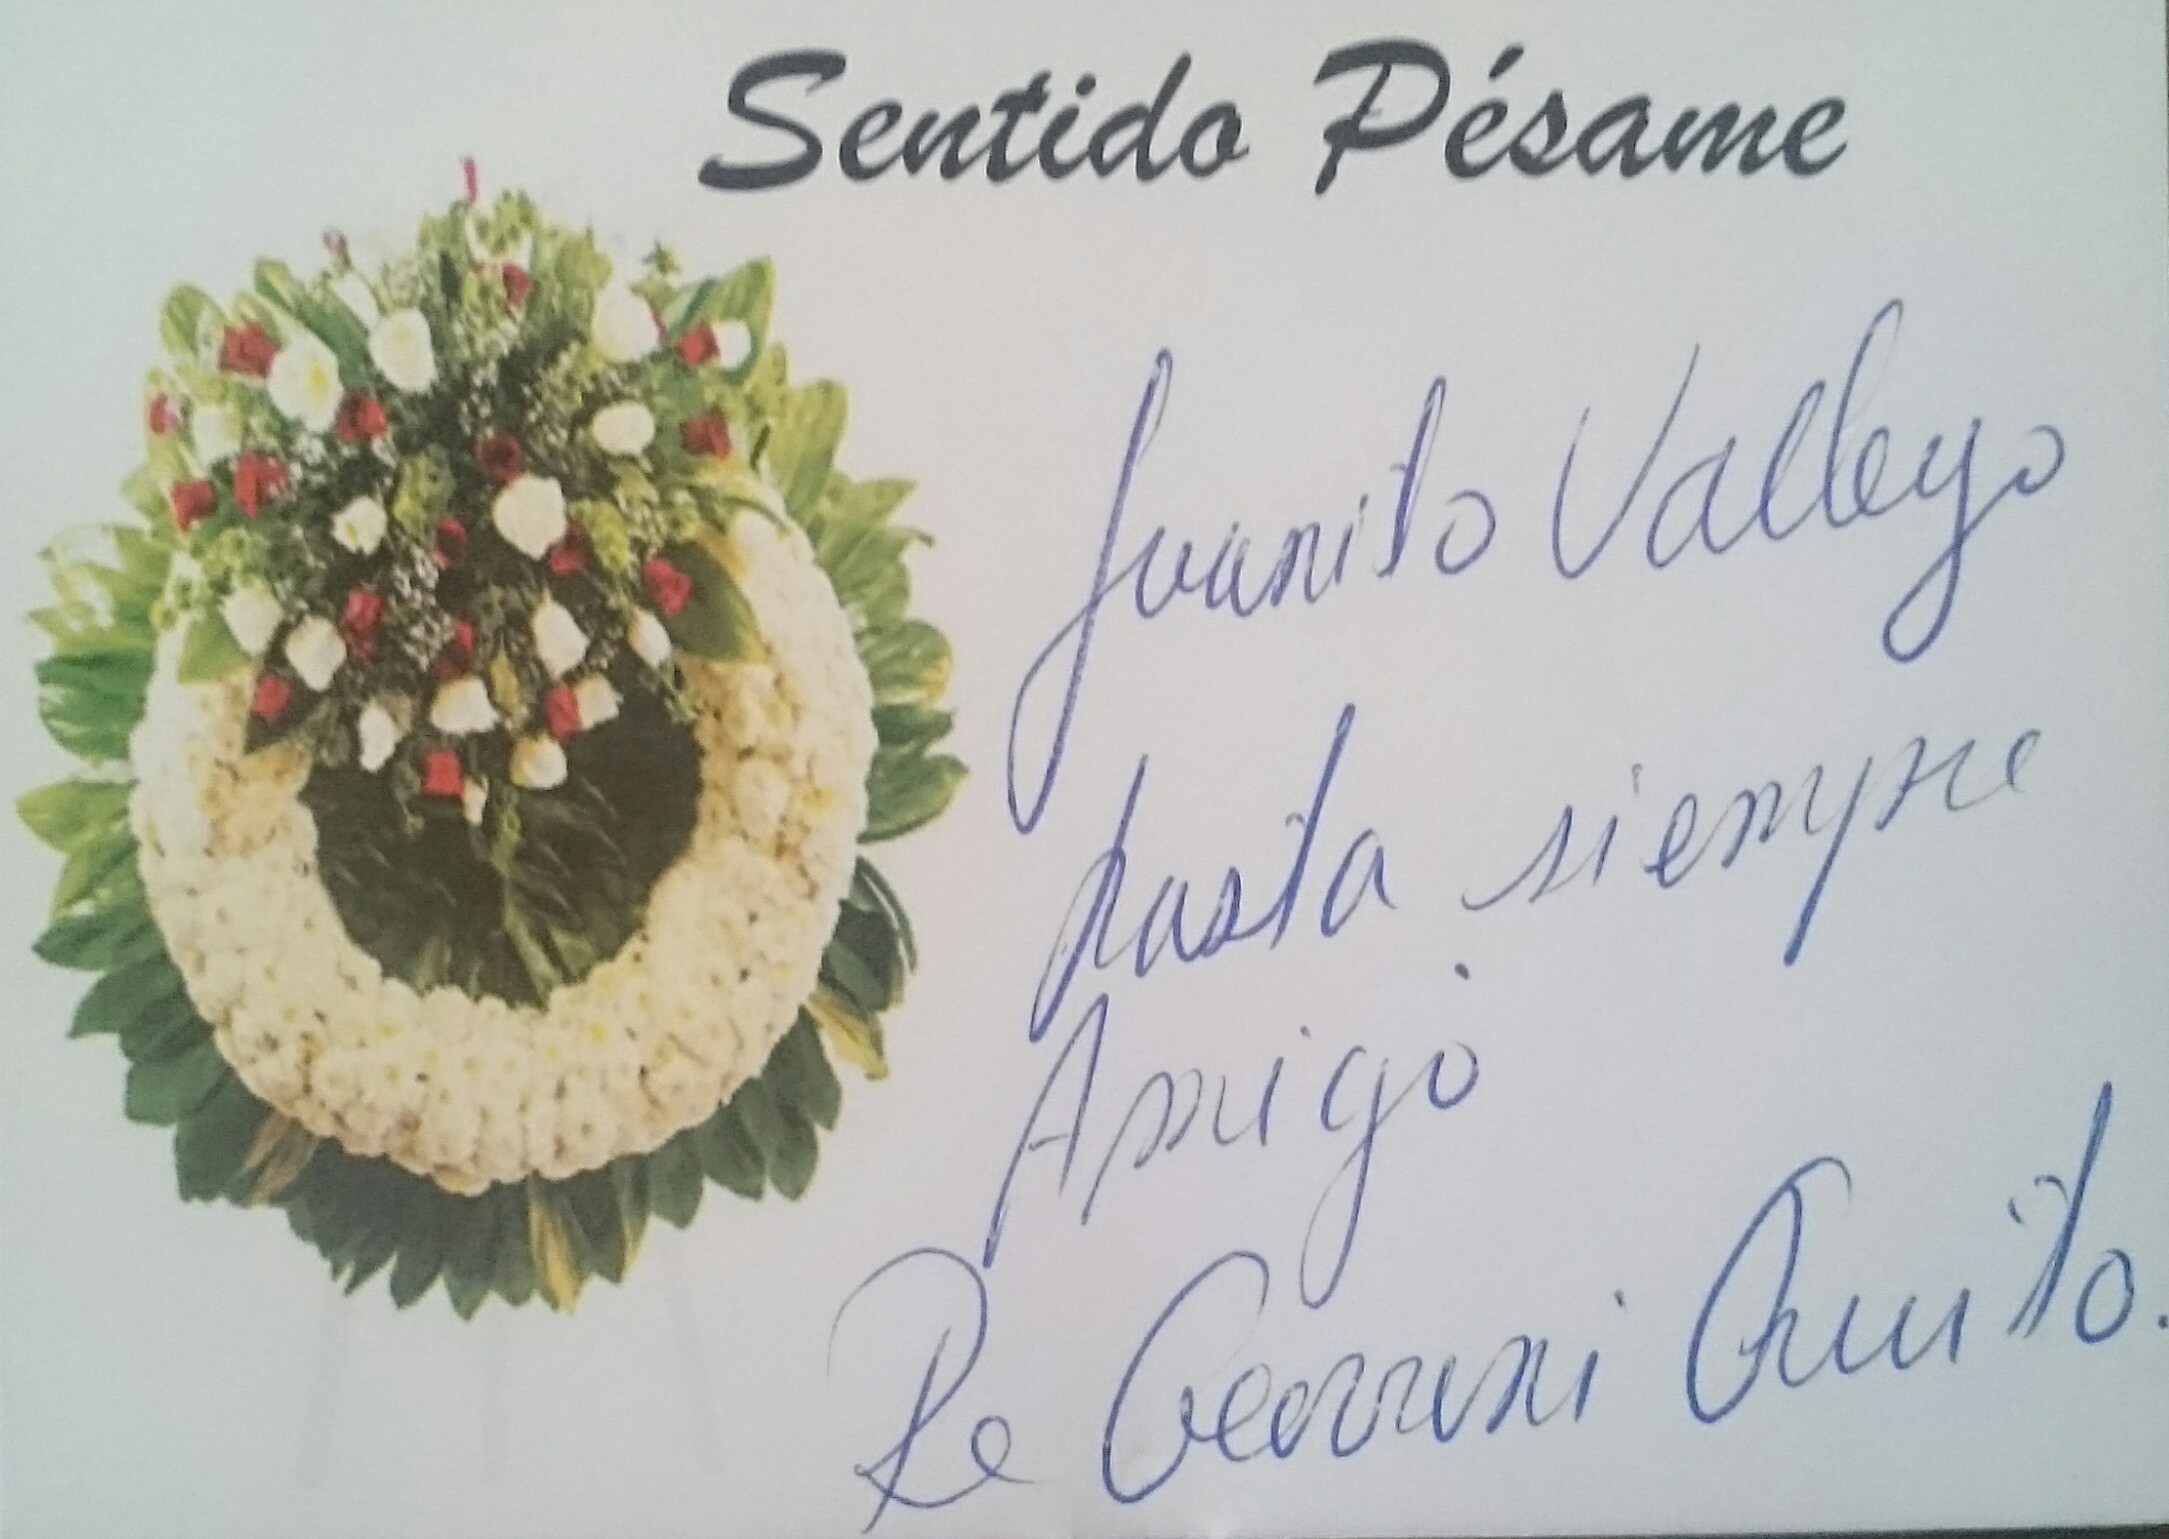 Sentido Pésame
Juanito Valleyo
hasta siempre
Amigo
Quito.